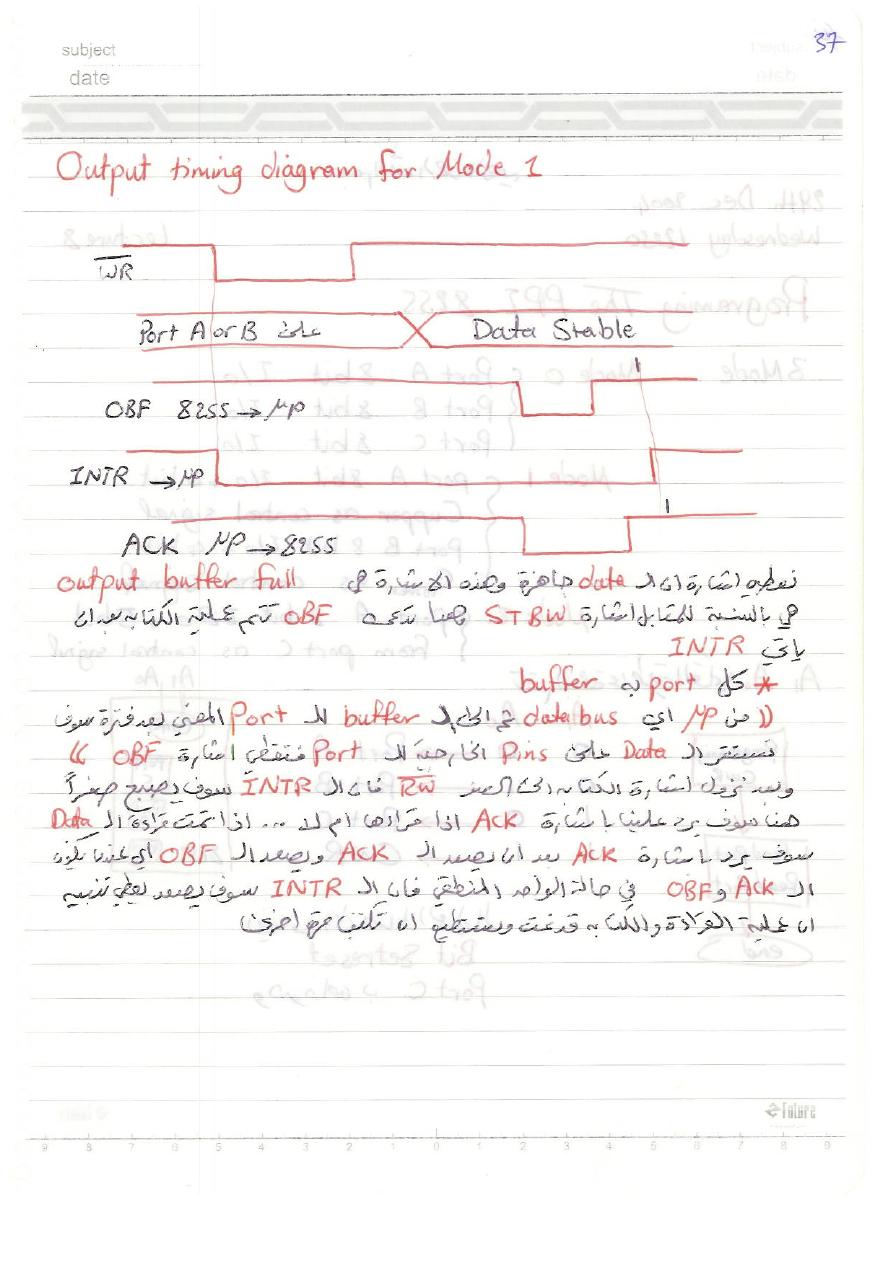 37
subject
date
Output timing diagram for Mode 1
WR
Port A or B على
Data Stable
1
OBF 8255 → μP
INTR → μP
1
ACK μP → 8255
نعطيه اشارة ان الـ data جاهزة وهذه الاشارة هي output buffer full
هي بالنسبة للمقابل اشارة STBW هنا تدعى OBF تتم عملية الكتابه بعد ان
ياتي INTR
* كل port به buffer
(( من μP اي data bus ثم الى الـ buffer للـ Port المعني بعد فترة سوف
تستقر الـ Data على Pins الخارجية للـ Port فتعطي اشارة OBF ))
وبعد نزول اشارة الكتابه الى الصفر RW فان الـ INTR سوف يصبح صفراً
هنا سوف يرد علينا باشارة ACK اذا قرأها ام لا ... اذا تمت قراءة الـ Data
سوف يرد باشارة ACK بعد ان يصعد الـ ACK ويصعد الـ OBF اي عندما يكون
الـ ACK و OBF في حالة الواحد المنطقي فان الـ INTR سوف يصعد يعطي تنبيه
ان عملية القراءة والكتابه قد تمت ونستطيع ان نكتب مرة اخرى
Future
9 8 7 6 5 4 3 2 1 0 1 2 3 4 5 6 7 8 9